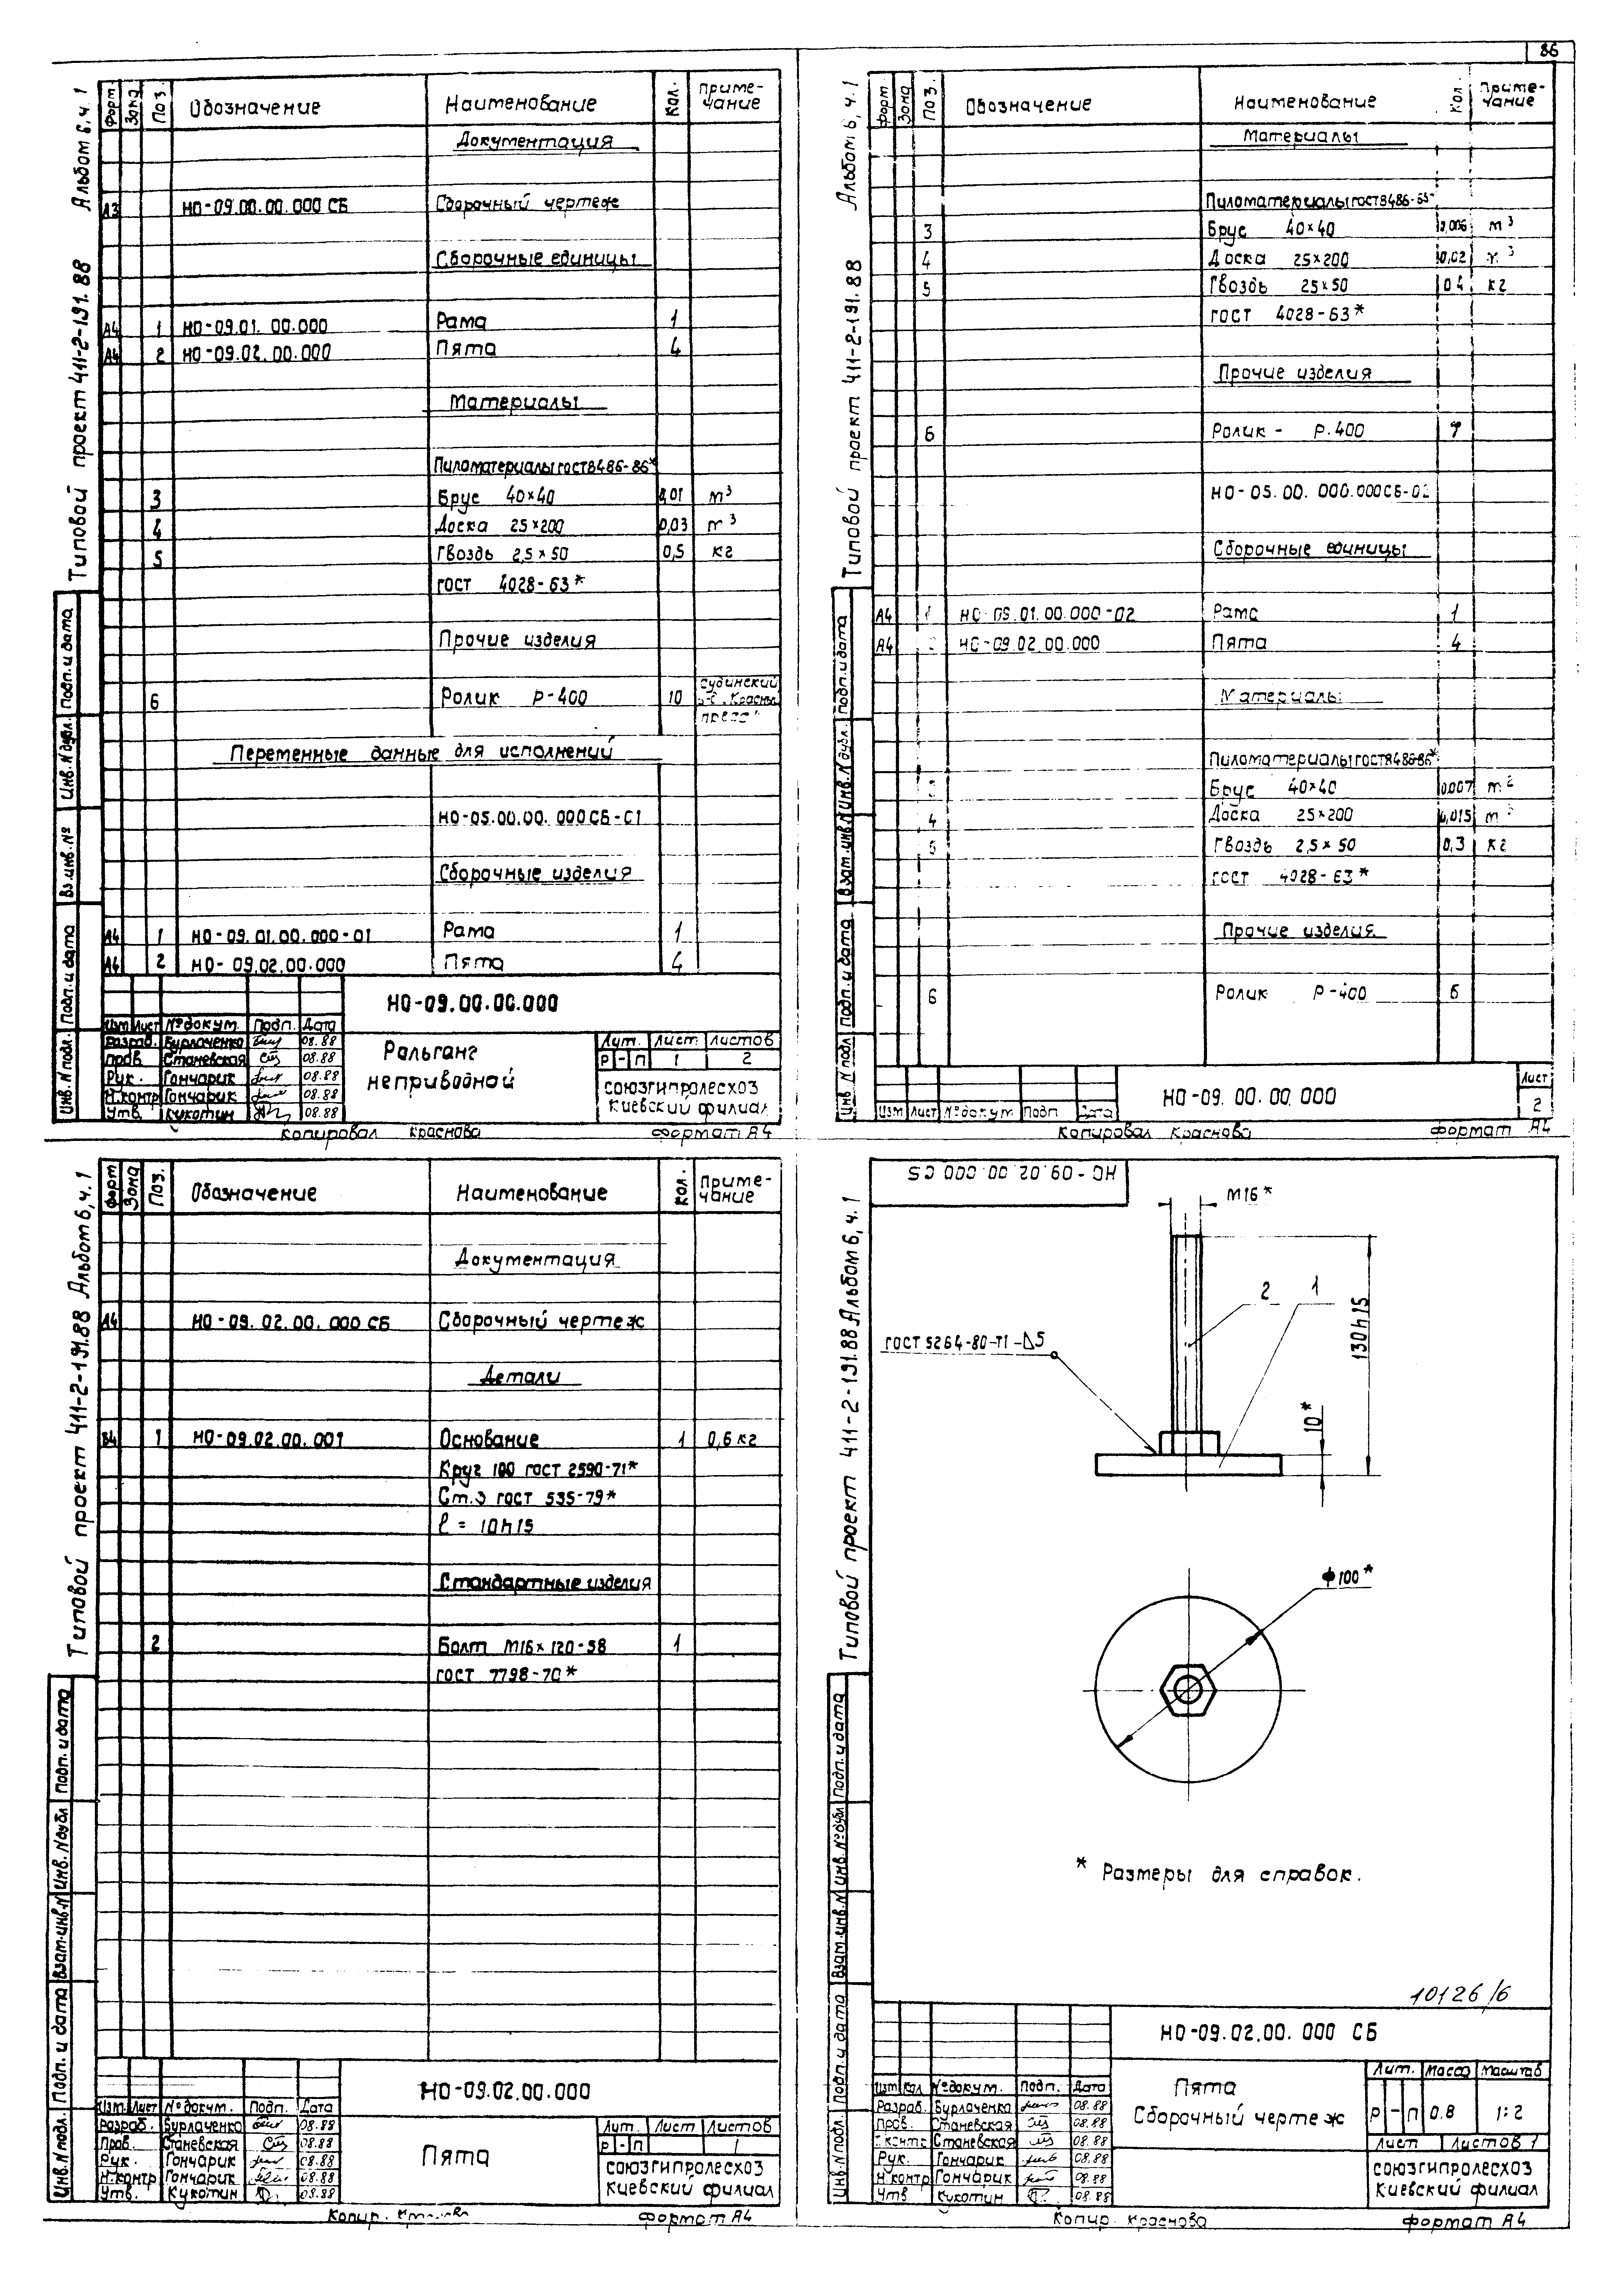 86
Типовой проект 411-2-191.88 Альбом 6, ч. 1
Форм. Зона Поз. Обозначение Наименование Кол. Приме-
чание
Документация
А3 НО-09.00.00.000 СБ Сборочный чертеж
Сборочные единицы
А4 1 НО-09.01.00.000 Рама 1
А4 2 НО-09.02.00.000 Пята 4
Материалы
Пиломатериалы гост 8486-86*
3 Брус 40×40 0,01 м3
4 Доска 25×200 0,03 м3
5 Гвоздь 2,5×50 0,5 кг
гост 4028-63*
Прочие изделия
6 Ролик Р-400 10
Переменные данные для исполнений
НО-05.00.00.000 СБ-01
Сборочные изделия
А4 1 НО-09.01.00.000-01 Рама 1
А4 2 НО-09.02.00.000 Пята 4
НО-09.00.00.000
Изм Лист №докум. Подп. Дата
Разраб. Бурлаченко 08.88
Пров. Станевская 08.88
Рук. Гончарик 08.88
Н.контр Гончарик 08.88
Утв. Кукотин 08.88
Рольганг
неприводной
Лит. Лист Листов
Р - П 1 2
СОЮЗГИПРОЛЕСХОЗ
Киевский филиал
Инв. N подл. Подп. и дата Вз. инв. № Инв. N дубл. Подп. и дата
Копировал Краснова Формат А4
Типовой проект 411-2-191.88 Альбом 6, ч. 1
Форм Зона Поз. Обозначение Наименование Кол Приме-
чание
Материалы
Пиломатериалы гост 8486-65
3 Брус 40×40 0,006 м3
4 Доска 25×200 0,02 м3
5 Гвоздь 25×50 0.4 кг
гост 4028-63*
Прочие изделия
6 Ролик - Р.400 7
НО-05.00.000.000СБ-02
Сборочные единицы
А4 1 НО-09.01.00.000-02 Рама 1
А4 2 НО-09.02.00.000 Пята 4
Материалы
Пиломатериалы гост 8486-86*
3 Брус 40×40 0.007 м3
4 Доска 25×200 0,015 м3
5 Гвоздь 2,5×50 0,3 кг
гост 4028-63*
Прочие изделия
6 Ролик Р-400 6
Изм Лист №докум. Подп. Дата
НО-09.00.00.000
Лист
2
Инв. N подл Подп. и дата Взам. инв. N Инв. N дубл. Подп. и дата
Копировал Краснова Формат А4
Типовой проект 411-2-191.88 Альбом 6, ч. 1
Форм Зона Поз. Обозначение Наименование Кол. Приме-
чание
Документация
А4 НО-09.02.00.000 СБ Сборочный чертеж
Детали
Б4 1 НО-09.02.00.001 Основание 1 0,6 кг
Круг 100 гост 2590-71*
Ст.3 гост 535-79*
ℓ = 10h15
Стандартные изделия
2 Болт М16×120-58 1
гост 7798-70*
НО-09.02.00.000
Изм. Лист №докум. Подп. Дата
Разраб. Бурлаченко 08.88
Пров. Станевская 08.88
Рук. Гончарик 08.88
Н.контр Гончарик 08.88
Утв. Кукотин 08.88
Пята
Лит. Лист Листов
Р - П 1
СОЮЗГИПРОЛЕСХОЗ
Киевский филиал
Инв. N подл. Подп. и дата Взам. инв. N Инв. N дубл Подп. и дата
Копир. Формат А4
Типовой проект 411-2-191.88 Альбом 6, ч. 1
НО-09.02.00.000 СБ
М16*
2 1
ГОСТ 5264-80-Т1-⊿5
130h15
10*
ф100*
* Размеры для справок.
10126/6
НО-09.02.00.000 СБ
Изм Кол №докум. Подп. Дата
Разраб. Бурлаченко 08.88
Пров. Станевская 08.88
Т.контр Станевская 08.88
Рук. Гончарик 08.88
Н.контр Гончарик 08.88
Утв Кукотин 08.88
Пята
Сборочный чертеж
Лит. Масса Масштаб
Р - П 0.8 1:2
Лист Листов 1
СОЮЗГИПРОЛЕСХОЗ
Киевский филиал
Инв. N подл. Подп. и дата Взам. инв. N Инв. № дубл Подп. и дата
Копир. Краснова Формат А4